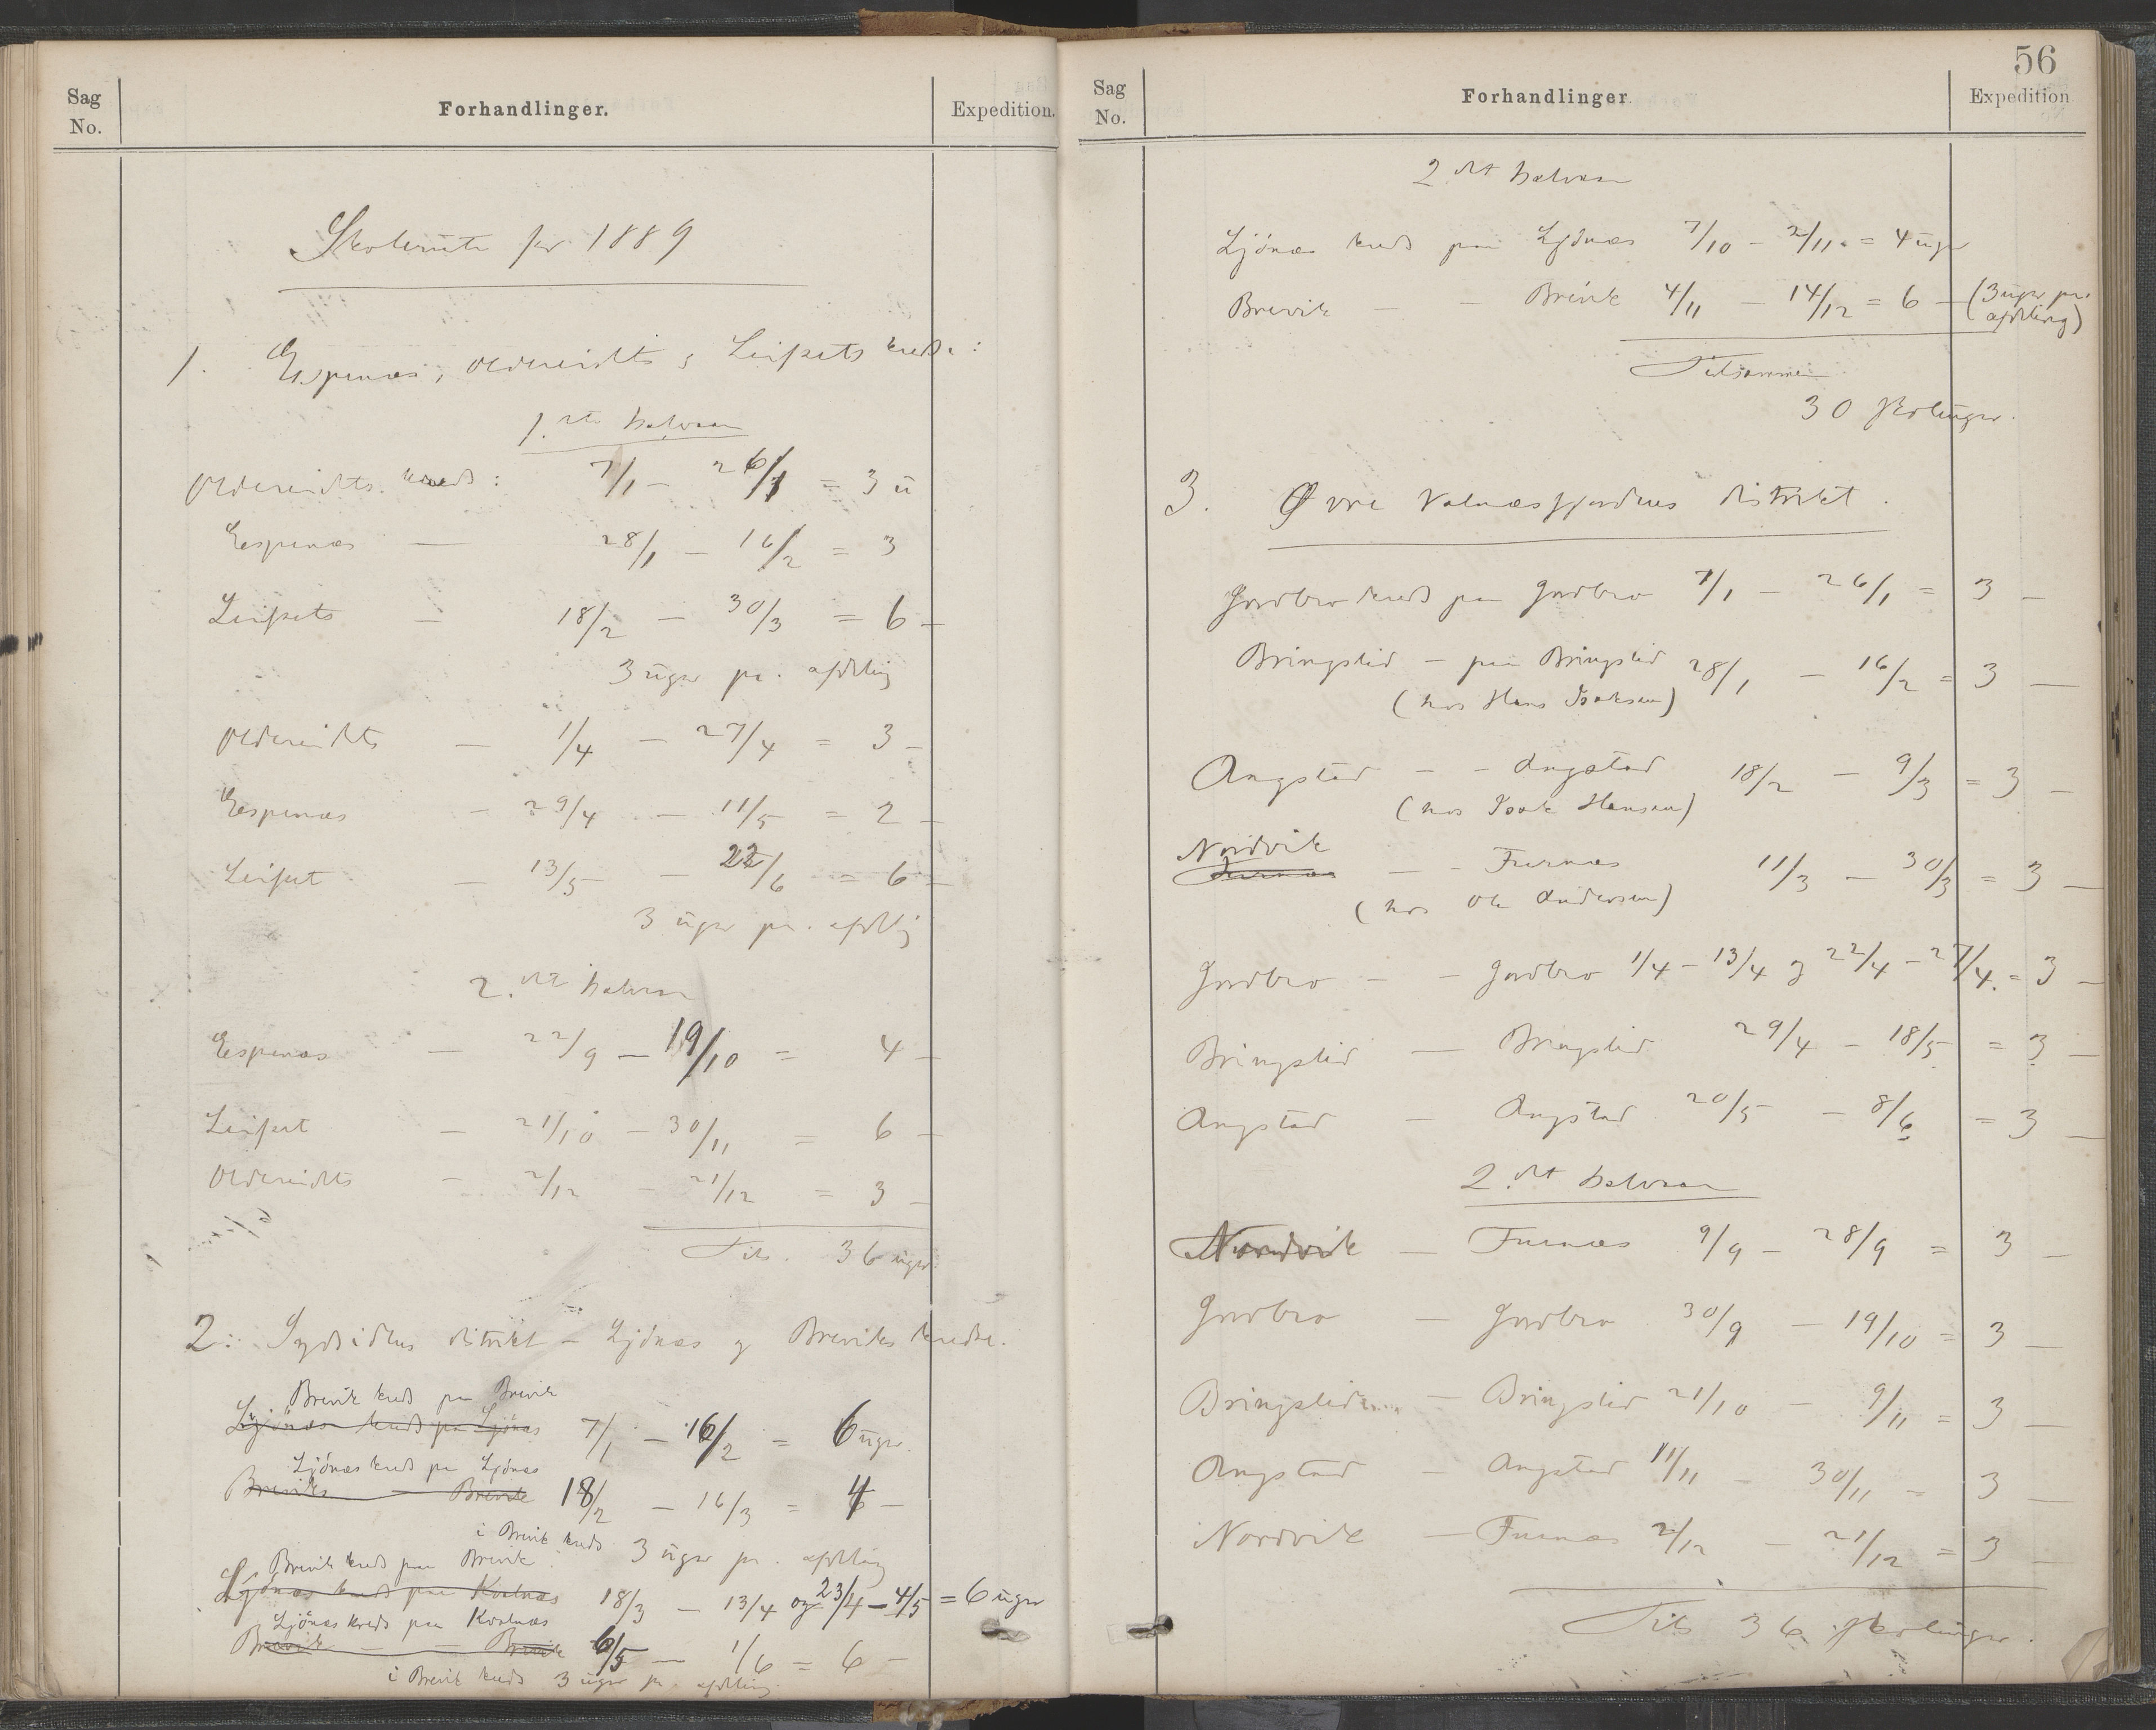 Sag No.
Forhandlinger.
Expedition.
Skoleruta for 1889
1. Espenæs, Oldereidets & Leifsets kredse:
1.ste halvaar
Oldereidets kreds: 7/1 - 26/1 = 3 u
Espenæs — 28/1 - 16/2 = 3
Leifsets — 18/2 - 30/3 = 6 —
3 uger pr. afdeling
Oldereidets — 1/4 - 27/4 = 3 —
Espenæs — 29/4 - 11/5 = 2 —
Leifset — 13/5 - 22/6 = 6 —
3 uger pr. afdelig
2.det halvaar
Espenæs — 22/9 - 19/10 = 4 —
Leifset — 21/10 - 30/11 = 6 —
Oldereidets — 2/12 - 21/12 = 3 —
Tils. 36 uger
2. Sydsidens distrikt - Ljönæs og Breviks kredse.
Brevik kreds paa Brevik
Ljönæs kreds paa Ljönæs 7/1 - 16/2 = 6 uger.
Ljönæs kreds paa Ljönæs
Breviks — Brevik 18/2 - 16/3 = 4 —
i Brevik kreds 3 uger pr. afdeling
Brevik kreds paa Brevik
Ljönæs kreds paa Kvalnæs 18/3 - 13/4 og 23/4 - 4/5 = 6 uger
Ljönæs kreds paa Kvalnæs
Brevik — — Brevik 6/5 — 1/6 = 6 —
i Brevik kreds 3 uger pr. afdeling
56
Sag No.
Forhandlinger.
Expedition
2det halvaar
Ljönæs kreds paa Ljönæs 7/10 - 2/11 = 4 uger
Brevik — — Brevik 4/11 - 14/12 = 6 — (3 uger pr. afdeling)
Tilsammen
30 skoleuger.
3. Øvre Valnæsfjordens distrikt.
Jordbro kreds paa Jordbro 7/1 - 26/1 = 3 —
Bringslid - paa Bringslid 28/1 - 16/2 = 3 —
(hos Hans Isaksen)
Angstad - - Angstad 18/2 - 9/3 = 3 —
(hos Isak Hansen)
Nordvik
Furnæs — - Furnæs 11/3 - 30/3 = 3 —
(hos Ole Andersen)
Jordbro - - Jordbro 1/4 - 13/4 og 22/4 - 27/4. = 3 —
Bringslid — Bringslid 29/4 - 18/5 = 3 —
Angstad — Angstad 20/5 - 8/6 = 3 —
2.det halvaar
Nordvik — Furnæs 9/9 - 28/9 = 3 —
Jordbro — Jordbro 30/9 - 19/10 = 3 —
Bringslid — Bringslid 21/10 - 9/11 = 3 —
Angstad - Angstad 11/11 - 30/11 = 3 —
Nordvik — Furnæs 2/12 - 21/12 = 3 —
Tils 36 skoleuger.